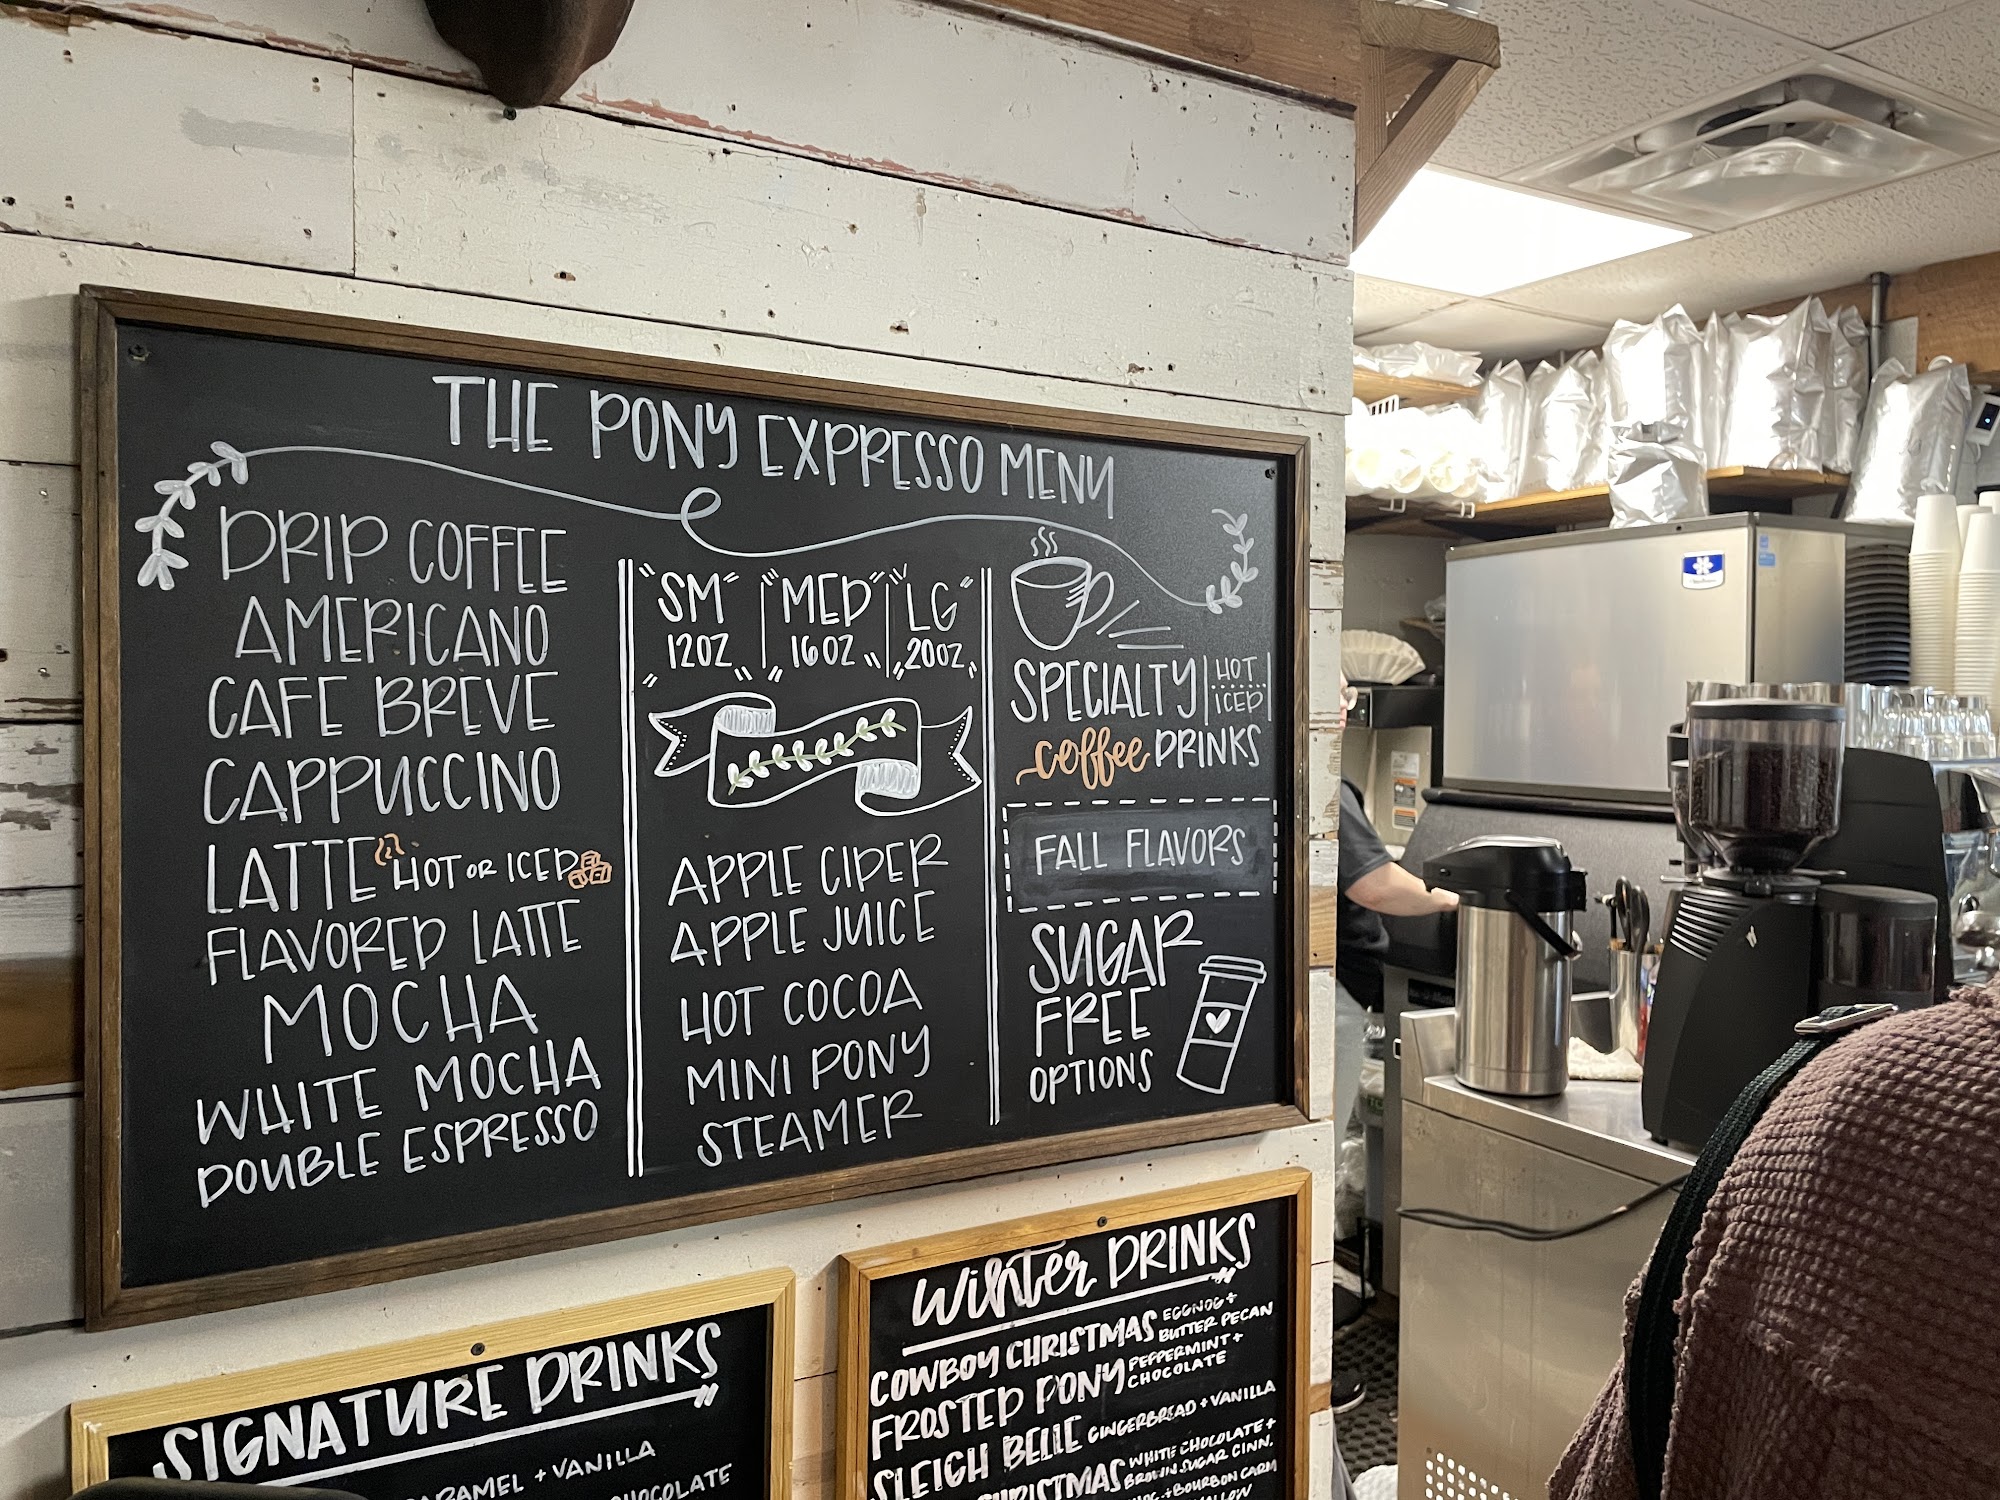 THE PONY EXPRESSO MENU
DRIP COFFEE
AMERICANO
CAFE BREVE
CAPPUCCINO
LATTE HOT OR ICED
FLAVORED LATTE
MOCHA
WHITE MOCHA
DOUBLE ESPRESSO
"SM" "MED" "LG"
12OZ 16OZ 20OZ
APPLE CIDER
APPLE JUICE
HOT COCOA
MINI PONY
STEAMER
SPECIALTY HOT ICED
coffee DRINKS
FALL FLAVORS
SUGAR
FREE
OPTIONS
SIGNATURE DRINKS
+ VANILLA
CHOCOLATE
Winter DRINKS
COWBOY CHRISTMAS EGGNOG +
BUTTER PECAN
FROSTED PONY PEPPERMINT +
CHOCOLATE
SLEIGH BELLE GINGERBREAD + VANILLA
CHRISTMAS WHITE CHOCOLATE +
BROWN SUGAR CINN.
+ BOURBON CARM